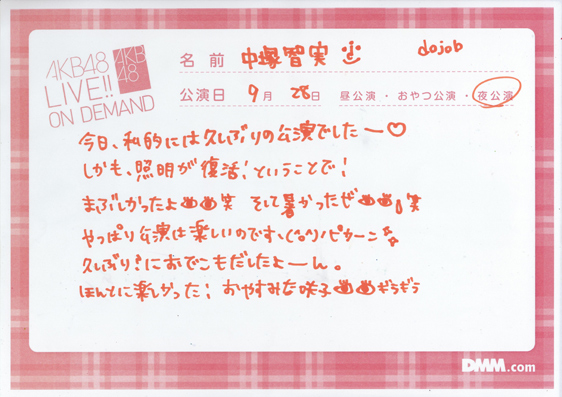 AKB48
LIVE!!
ON DEMAND
AKB
48
名前 中塚智実 dojob
公演日 9月 28日 昼公演・おやつ公演・夜公演
今日、私的には久しぶりの公演でしたー♡
しかも、照明が復活!ということで!
まぶしかったよ笑 そして暑かったぜ笑
やっぱり公演は楽しいのです、(^o^)ノピカーン
久しぶり!におでこもだしたよーん。
ほんとに楽しかった! おやすみな咲子 ぎらぎら
DMM.com